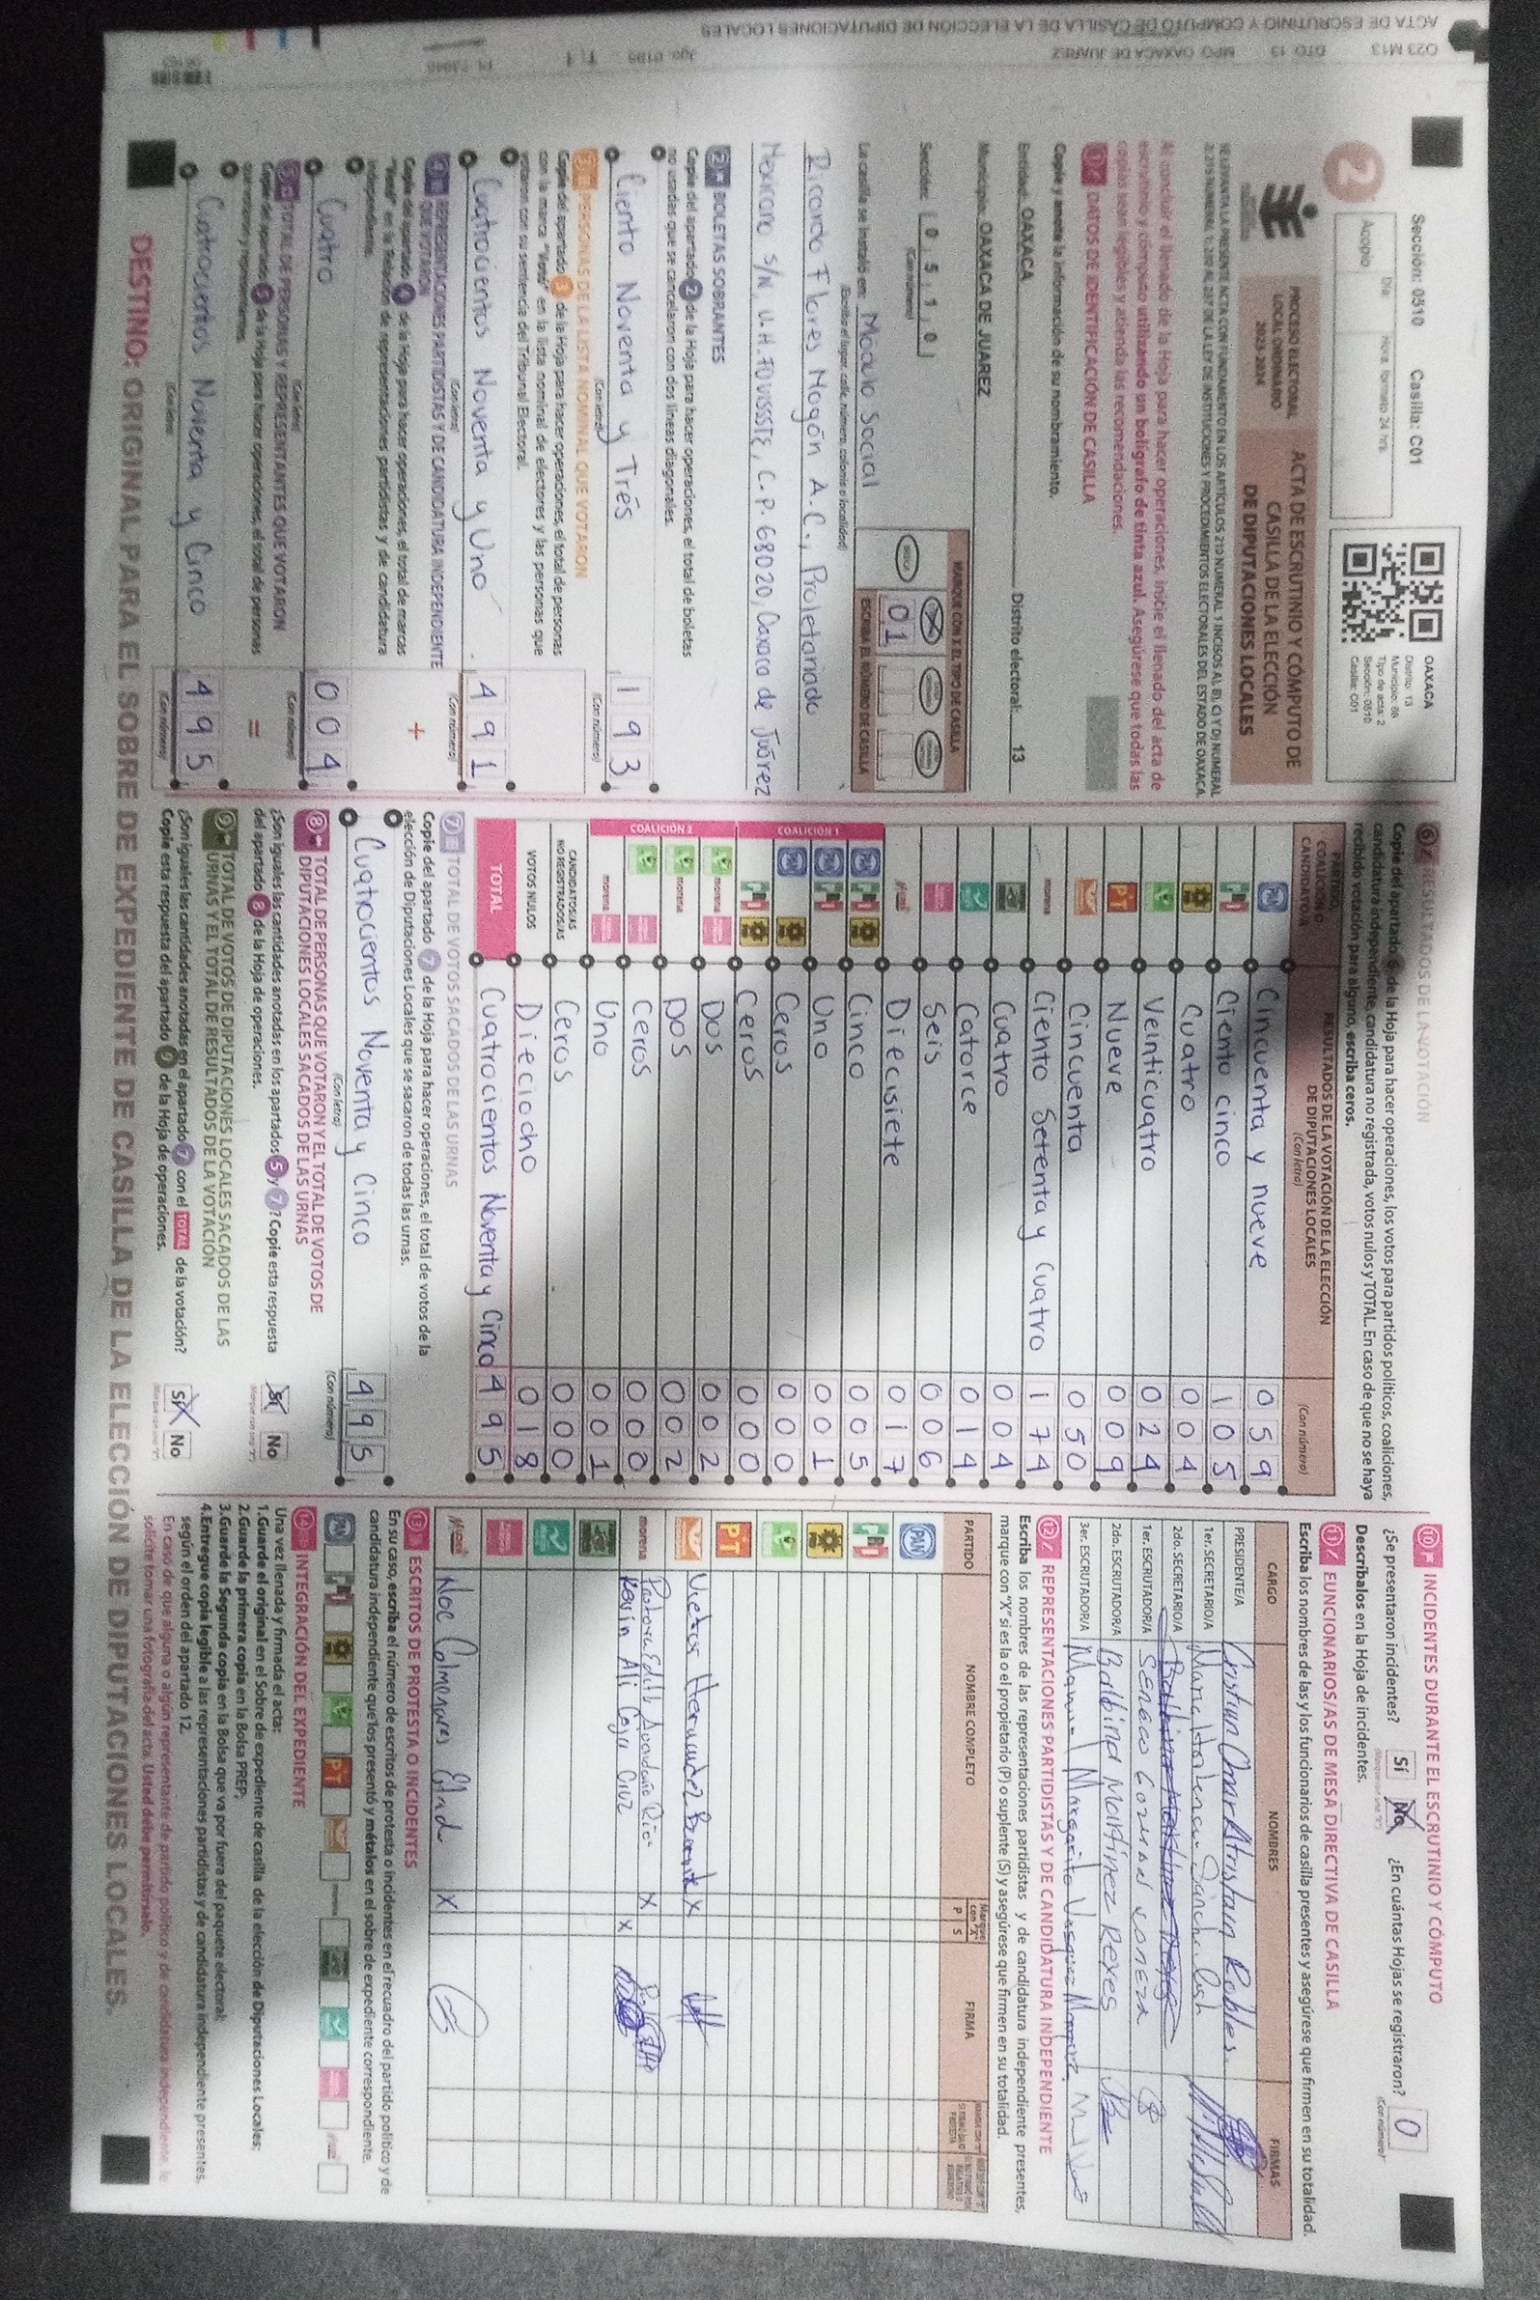 Sección: 0510 Casilla: C01
2
Día Hora formato 24 hrs
Acopio
OAXACA
Distrito: 13
Municipio: 66
Tipo de acta: 2
Sección: 0510
Casilla: C01
PROCESO ELECTORAL
LOCAL ORDINARIO
2023-2024
ACTA DE ESCRUTINIO Y CÓMPUTO DE
CASILLA DE LA ELECCIÓN
DE DIPUTACIONES LOCALES
Al concluir el llenado de la Hoja para hacer operaciones, inicie el llenado del acta de
escrutinio y cómputo utilizando un bolígrafo de tinta azul. Asegúrese que todas las
copias sean legibles y atienda las recomendaciones.
1 DATOS DE IDENTIFICACIÓN DE CASILLA
Copie y anote la información de su nombramiento.
Entidad: OAXACA Distrito electoral: 13
Municipio: OAXACA DE JUAREZ
Sección: 0510
(Con número)
MARQUE CON X EL TIPO DE CASILLA
ESCRIBA EL NÚMERO DE CASILLA
01
La casilla se instaló en: Módulo Social
(Escriba el lugar, calle, número, colonia o localidad)
Ricardo Flores Magón A.C., Proletariado
Mexicano S/N, U.H. FOVISSSTE, C.P. 68020, Oaxaca de Juárez
2 BOLETAS SOBRANTES
Copie del apartado 2 de la Hoja para hacer operaciones, el total de boletas
no usadas que se cancelaron con dos líneas diagonales.
Ciento Noventa y Trés 193
(Con letra) (Con número)
3 PERSONAS DE LA LISTA NOMINAL QUE VOTARON
Copie del apartado 3 de la Hoja para hacer operaciones, el total de personas
con la marca "Votó" en la lista nominal de electores y las personas que
votaron con su sentencia del Tribunal Electoral.
Cuatrocientos Noventa y Uno 491
(Con letra) (Con número)
4 REPRESENTACIONES PARTIDISTAS Y DE CANDIDATURA INDEPENDIENTE
QUE VOTARON
Copie del apartado 4 de la Hoja para hacer operaciones, el total de marcas
"Votó" en la Relación de representaciones partidistas y de candidatura
independiente.
+
Cuatro 004
(Con letra) (Con número)
5 TOTAL DE PERSONAS Y REPRESENTANTES QUE VOTARON
Copie del apartado 5 de la Hoja para hacer operaciones, el total de personas
que votaron y representantes.
=
Cuatrocientos Noventa y Cinco 495
(Con letra) (Con número)
6 RESULTADOS DE LA VOTACIÓN
Copie del apartado 6 de la Hoja para hacer operaciones, los votos para partidos políticos, coaliciones,
candidatura independiente, candidatura no registrada, votos nulos y TOTAL. En caso de que no se haya
recibido votación para alguno, escriba ceros.
PARTIDO,
COALICIÓN O
CANDIDATO/A
RESULTADOS DE LA VOTACIÓN DE LA ELECCIÓN
DE DIPUTACIONES LOCALES
(Con letra) (Con número)
PAN Cincuenta y nueve 059
PRI Ciento cinco 105
PRD Cuatro 004
VERDE Veinticuatro 024
PT Nueve 009
Cincuenta 050
morena Ciento Setenta y Cuatro 174
Cuatro 004
Catorce 014
Seis 006
Mujer Diecisiete 017
COALICIÓN 1
PAN PRI PRD Cinco 005
PAN PRI Uno 001
PAN PRD Ceros 000
PRI PRD Ceros 000
COALICIÓN 2
VERDE morena Dos 002
VERDE morena Dos 002
VERDE Ceros 000
morena Uno 001
CANDIDATOS/AS
NO REGISTRADOS/AS Ceros 000
VOTOS NULOS Dieciocho 018
TOTAL Cuatrocientos Noventa y Cinco 495
7 TOTAL DE VOTOS SACADOS DE LAS URNAS
Copie del apartado 7 de la Hoja para hacer operaciones, el total de votos de la
elección de Diputaciones Locales que se sacaron de todas las urnas.
Cuatrocientos Noventa y Cinco 495
(Con letra) (Con número)
8 TOTAL DE PERSONAS QUE VOTARON Y EL TOTAL DE VOTOS DE
DIPUTACIONES LOCALES SACADOS DE LAS URNAS
¿Son iguales las cantidades anotadas en los apartados 5 y 7? Copie esta respuesta
del apartado 8 de la Hoja de operaciones.
Sí No
9 TOTAL DE VOTOS DE DIPUTACIONES LOCALES SACADOS DE LAS
URNAS Y EL TOTAL DE RESULTADOS DE LA VOTACIÓN
¿Son iguales las cantidades anotadas en el apartado 7 con el TOTAL de la votación?
Copie esta respuesta del apartado 9 de la Hoja de operaciones.
Sí No
10 INCIDENTES DURANTE EL ESCRUTINIO Y CÓMPUTO
¿Se presentaron incidentes? Sí No ¿En cuántas Hojas se registraron? 0
(Con número)
Descríbalos en la Hoja de incidentes.
11 FUNCIONARIOS/AS DE MESA DIRECTIVA DE CASILLA
Escriba los nombres de las y los funcionarios de casilla presentes y asegúrese que firmen en su totalidad.
CARGO NOMBRES FIRMAS
PRESIDENTE/A Cristian Omar Aristarn Robles
1er. SECRETARIO/A Maria Hortencia Sánchez
2do. SECRETARIO/A Balbina Martínez Reyes
1er. ESCRUTADOR/A
2do. ESCRUTADOR/A Balbina Martínez Reyes
3er. ESCRUTADOR/A Manuel Margarito Vasquez
12 REPRESENTACIONES PARTIDISTAS Y DE CANDIDATURA INDEPENDIENTE
Escriba los nombres de las representaciones partidistas y de candidatura independiente presentes,
marque con "X" si es la o el propietario (P) o suplente (S) y asegúrese que firmen en su totalidad.
PARTIDO NOMBRE COMPLETO Marque con "X" P S FIRMA
PAN
PRI
PRD
VERDE
PT
Victor Hernandez X
morena Edith Avendaño X
Kevin Ali Cruz X
Mujer Noe Colmenares X
13 ESCRITOS DE PROTESTA O INCIDENTES
En su caso, escriba el número de escritos de protesta o incidentes en el recuadro del partido político y de
candidatura independiente que los presentó y métalos en el sobre de expediente correspondiente.
14 INTEGRACIÓN DEL EXPEDIENTE
Una vez llenada y firmada el acta:
1.Guarde el original en el Sobre de expediente de casilla de la elección de Diputaciones Locales;
2.Guarde la primera copia en la Bolsa PREP;
3.Guarde la Segunda copia en la Bolsa que va por fuera del paquete electoral;
4.Entregue copia legible a las representaciones partidistas y de candidatura independiente presentes,
según el orden del apartado 12.
En caso de que alguna o algún representante de partido político y de candidatura independiente, le
solicite tomar una fotografía del acta. Usted debe permitírselo.
DESTINO: ORIGINAL PARA EL SOBRE DE EXPEDIENTE DE CASILLA DE LA ELECCIÓN DE DIPUTACIONES LOCALES.
023 M13 DTO 13 MPO OAXACA DE JUAREZ
ACTA DE ESCRUTINIO Y COMPUTO DE CASILLA DE LA ELECCION DE DIPUTACIONES LOCALES